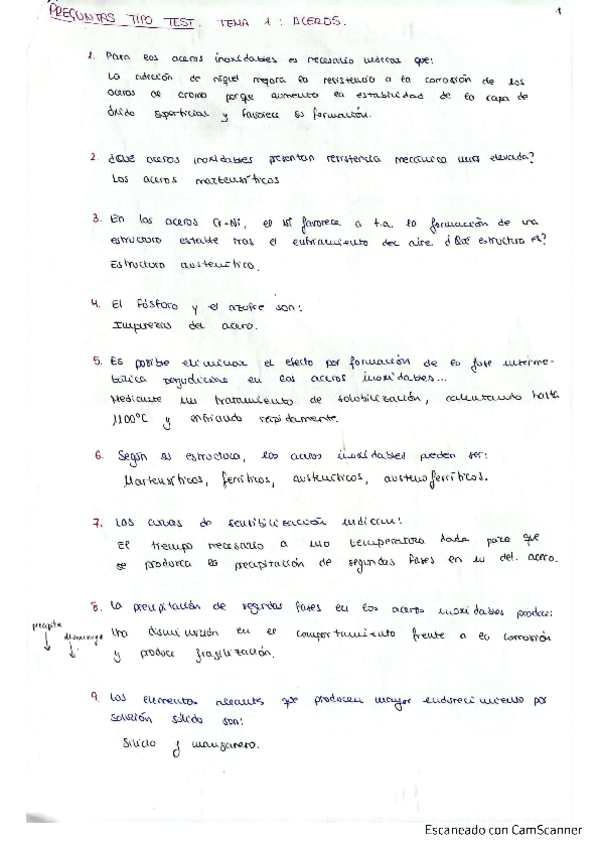 PREGUNTAS TIPO TEST. TEMA 1: ACEROS.
1
1. Para los aceros inoxidables es necesario indicar que:
La adición de níquel mejora la resistencia a la corrosión de los
aceros al cromo porque aumenta la estabilidad de la capa de
óxido superficial y favorece su formación.
2. ¿Qué aceros inoxidables presentan resistencia mecánica más elevada?
Los aceros martensíticos
3. En los aceros Cr-Ni, el Ni favorece a t.a. la formación de una
estructura estable tras el enfriamiento del aire. ¿Qué estructura es?
Estructura austenítica.
4. El fósforo y el azufre son:
Impurezas del acero.
5. Es posible eliminar el efecto por formación de la fase interme-
tálica perjudicial en los aceros inoxidables...
Mediante un tratamiento de solubilización, calentando hasta
1100°C y enfriando rápidamente.
6. Según su estructura, los aceros inoxidables pueden ser:
Martensíticos, ferríticos, austeníticos, austenoferríticos.
7. Las curvas de sensibilización indican:
El tiempo necesario a una temperatura dada para que
se produzca la precipitación de segundas fases en un det. acero.
8. La precipitación de segundas fases en los aceros inoxidables produce:
precipita
disminuye
Una disminución en el comportamiento frente a la corrosión
y produce fragilización.
9. Los elementos aleantes que producen mayor endurecimiento por
solución sólida son:
Silicio y manganeso.
Escaneado con CamScanner